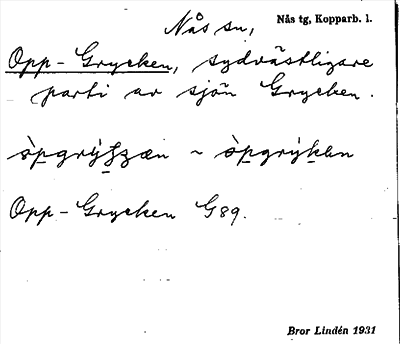 Nås sn, Nås tg, Kopparb. l.
Opp-Grycken, sydvästligare
parti av sjön Grycken.
òpgrýʂʐæn ~ òpgrýkæn
Opp-Grycken G89.
Bror Lindén 1931